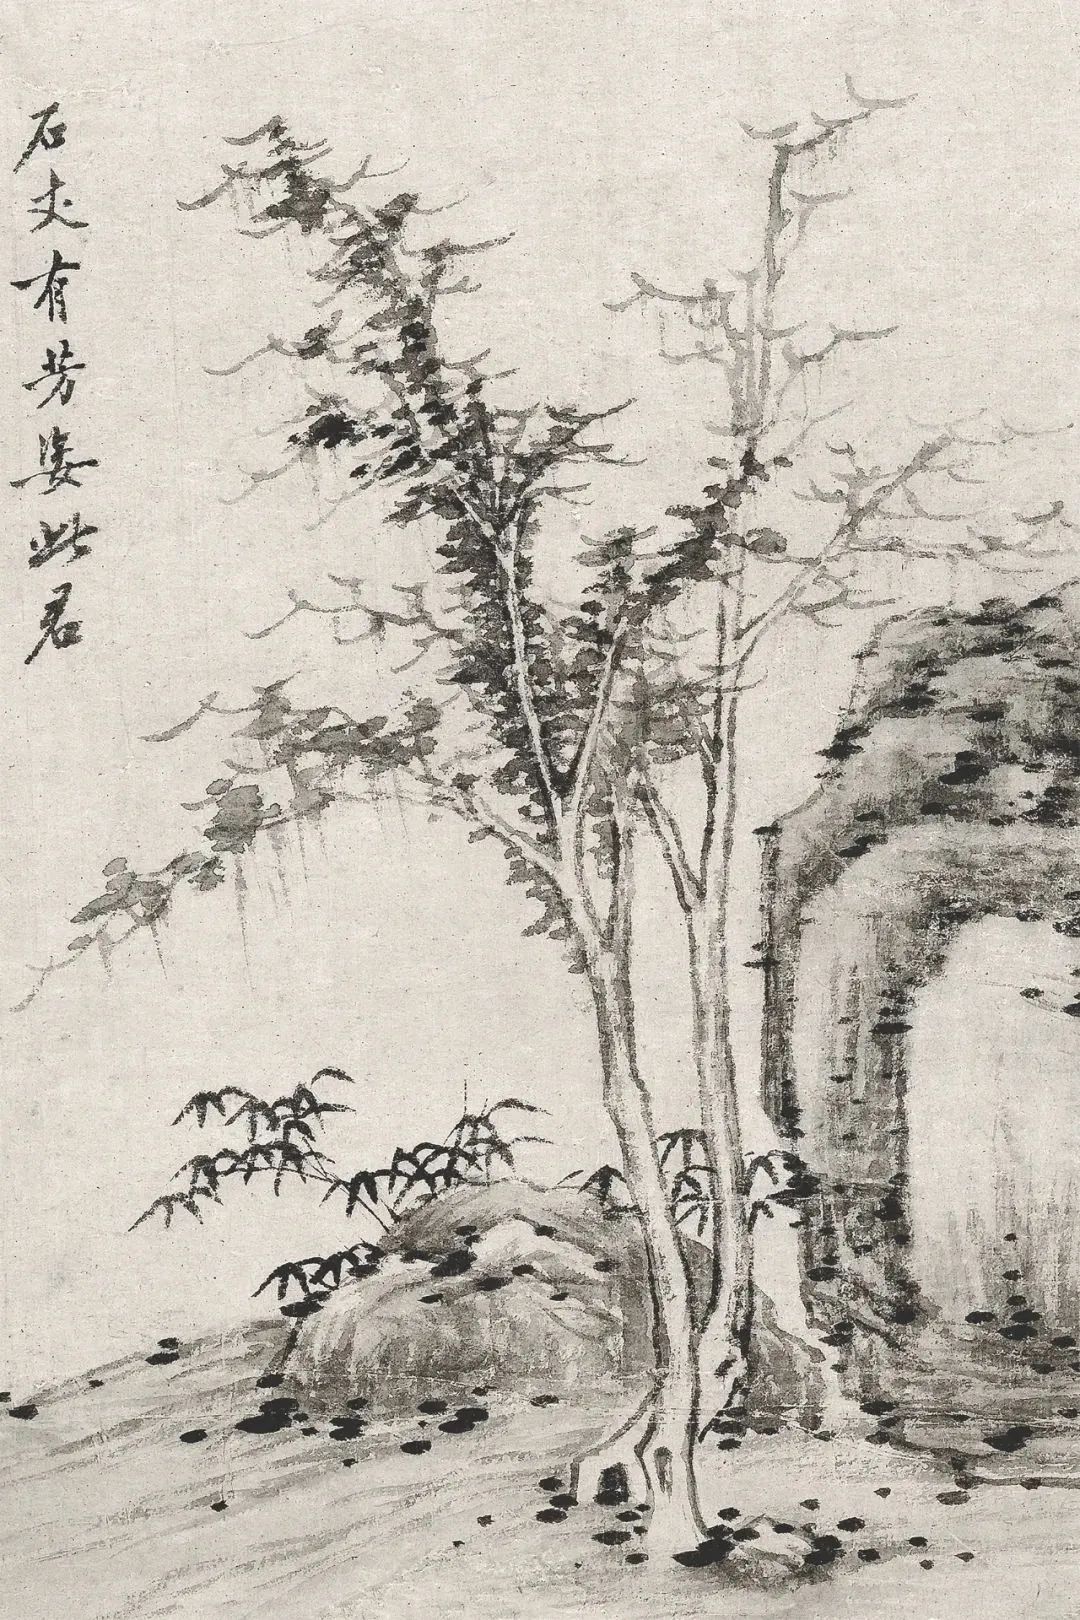 石丈有芳姿此君